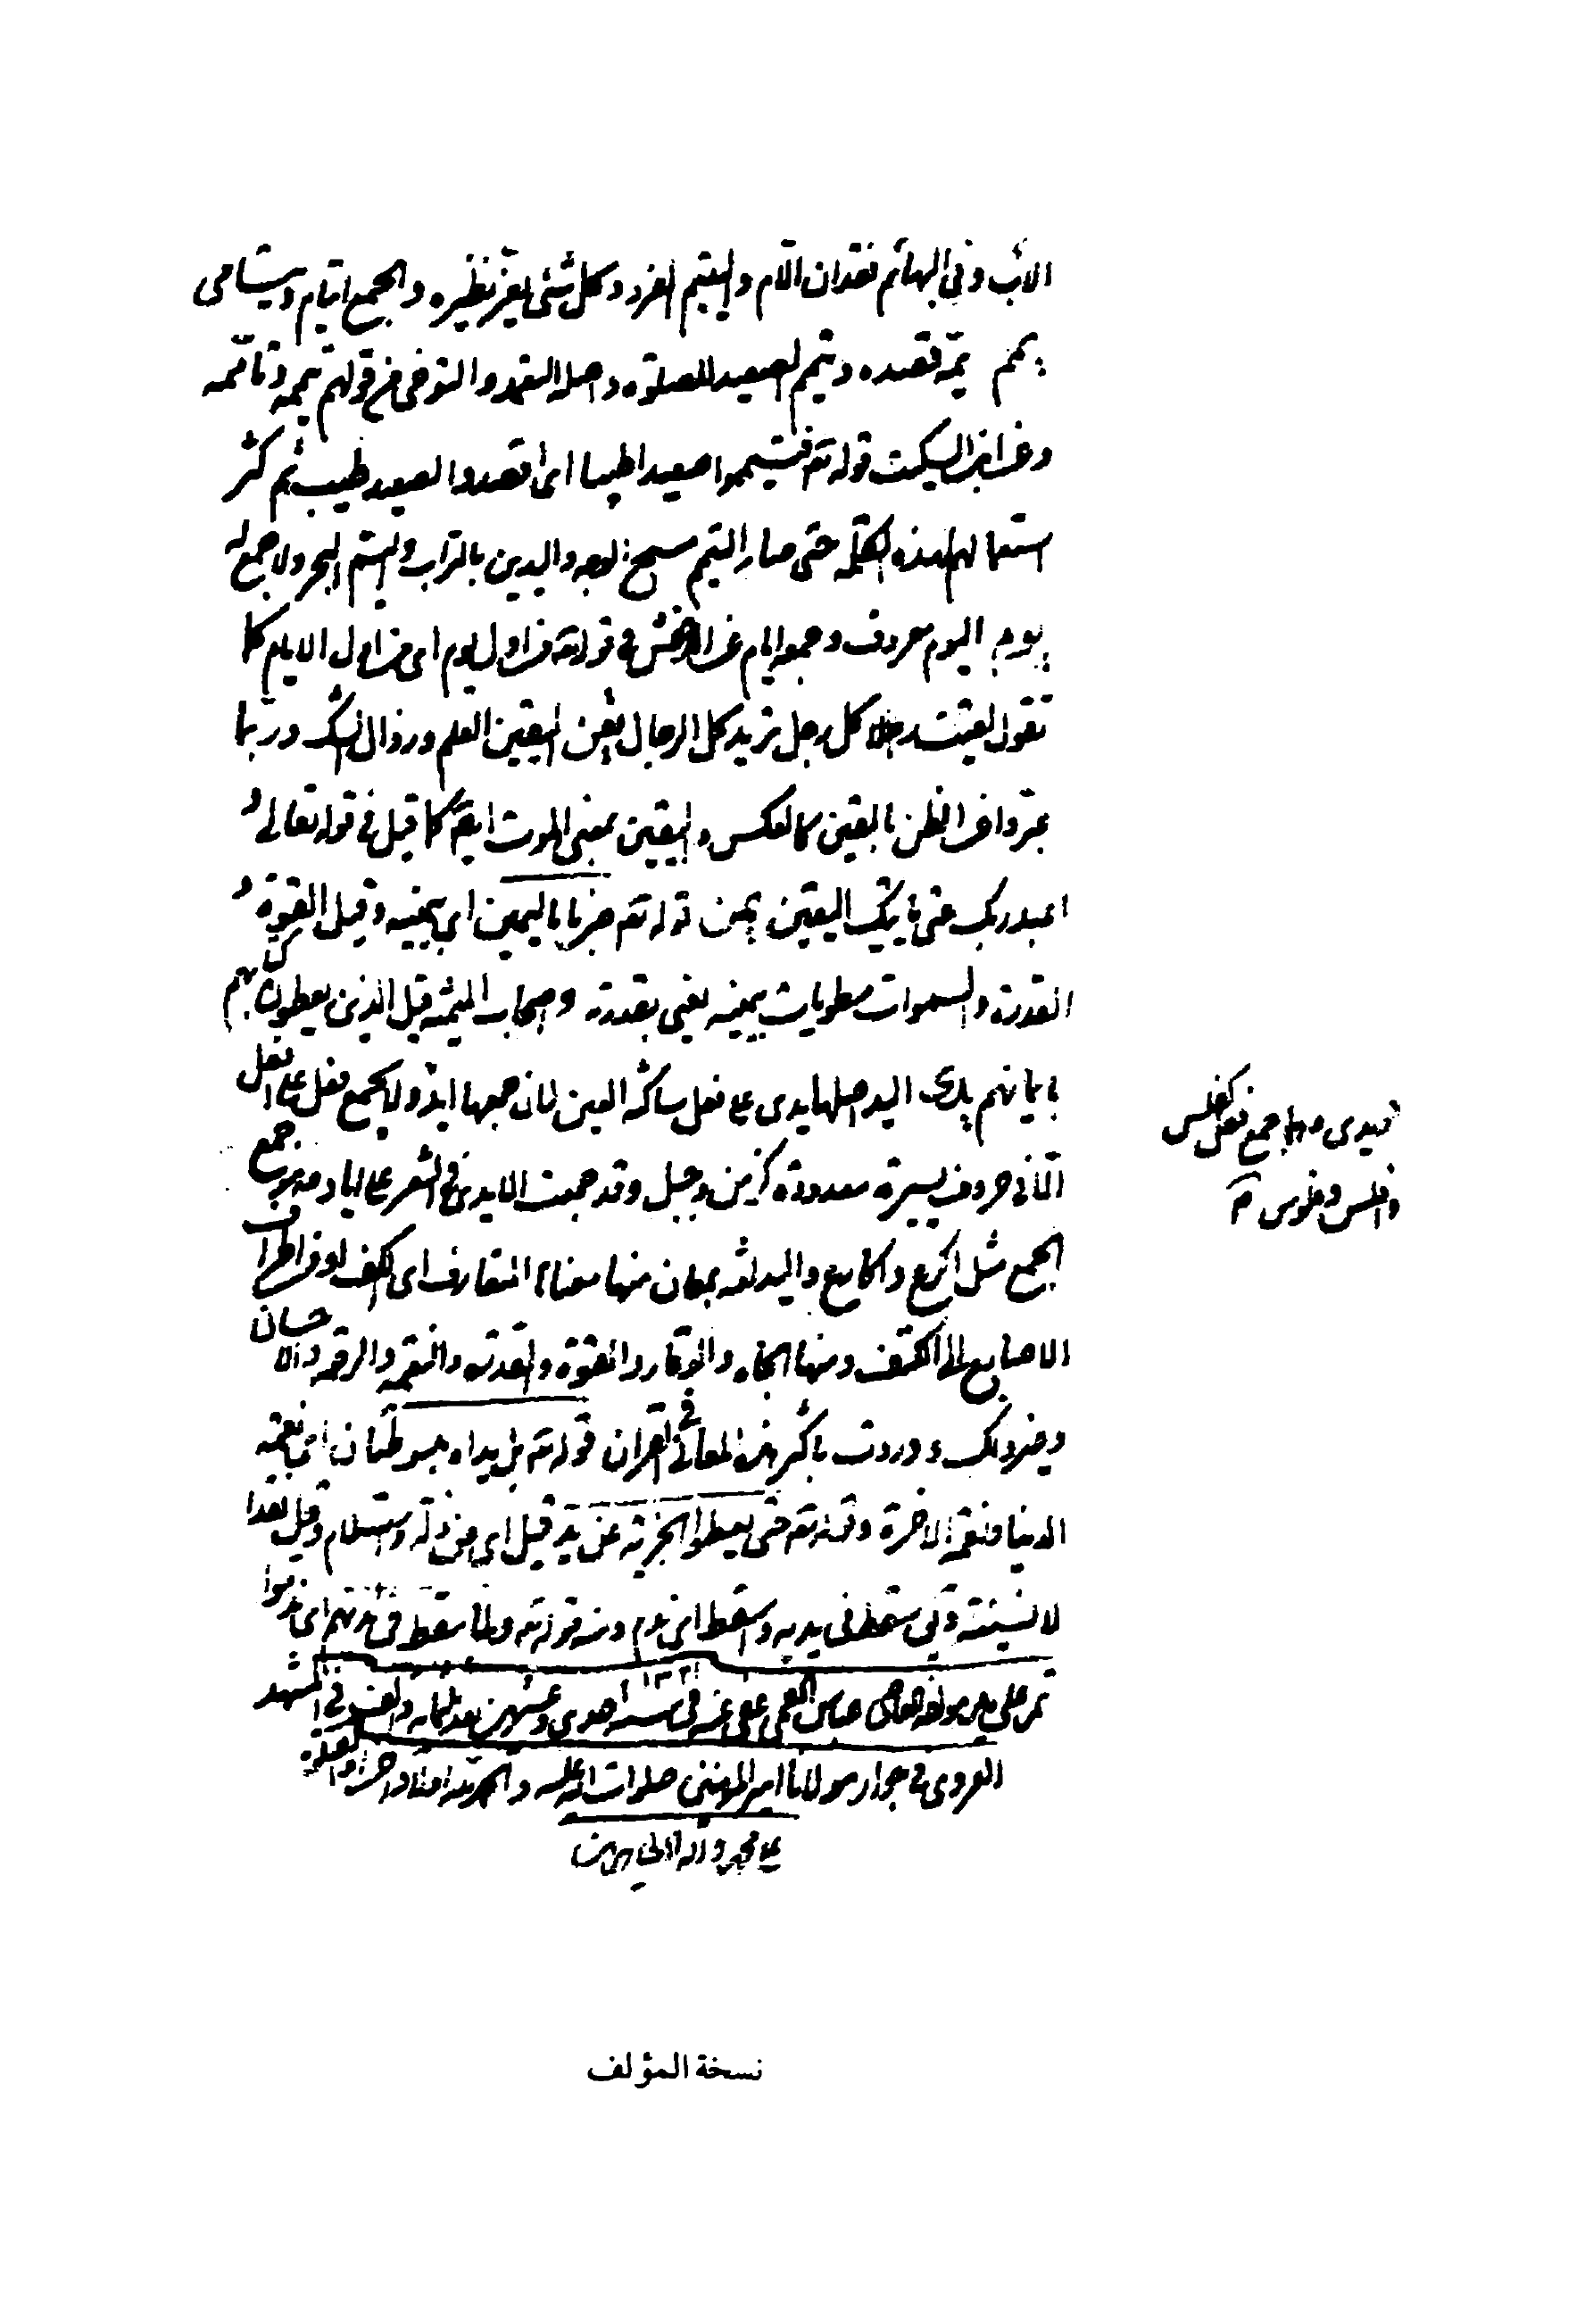 الأب وفي البهائم فقدان الأم واليتيم الفرد وكل شئ يعز نظيره والجمع ايتام ويتامى
يمم يممه قصده وتيمم الصعيد للصلوة واصله التعمد والتوخي من قولهم تيممه وتأممه
وعن ابن السكيت قوله تعه فتيمموا صعيدا طيبا اى اقصدوا الصعيد طيب ثم كثر
استعمالهم لهذه الكلمة حتى صار التيمم مسح الوجه واليدين بالتراب واليم البحر ولا جمع له
يوم اليوم معروف وجمعه ايام عن الأخفش في قوله تعه من اول يوم اى من اول الايام كما
تقول لقيت رجلا كل رجل تريد كل الرجال يقن اليقين العلم وزوال الشك وربما
عبروا عن الظن باليقين كالعكس واليقين بمعنى الموت ايضا كما قيل في قوله تعالى و
اعبد ربك حتى يأتيك اليقين يمن قوله تعه ضربا باليمين اي بيمينه وقيل القوة و
القدرة والسموات مطويات بيمينه يعني بقدرته واصحاب الميمنة قيل الذين يعطون كتابهم
بايمانهم يدى اليد اصلها يدى على فعل ساكنة العين لان جمعها ايد ولا يجمع فعل على افعل
الا في حروف يسيرة معدودة كزمن وجبل وقد جمعت الايدى في الشعر على اياد وهو جمع
الجمع مثل اكرع واكارع واليد لغة بمعان منها معناه المتعارف اى الكف او من اطراف
الاصابع الى الكتف ومنها الجاه والوقار والقوة والقدرة والنعمة والاحسان
وغير ذلك ووردت باكثر هذه المعاني في القران قوله تعه بل يداه مبسوطتان اى نعمة
الدنيا ونعمة الاخرة وقوله تعه حتى يعطوا الجزية عن يد قيل اى عن ذلة واستسلام وقيل نقدا
لا نسيئة وقيل سقط في يديه واسقط اى ندم ومنه قوله تعه ولما سقط في ايديهم اى ندموا
تم على يد مؤلفه العاصى عباس القمي عفى عنه في سنة ١٣٢١ احدى وعشرين بعد ثلثمائة والف في المشهد
الغروى في جوار مولانا امير المؤمنين صلوات الله عليه والحمد لله اولا واخرا والصلوة
على محمد وآله الطاهرين
جمع فعل كفلس
وافلس وفلوس
نسخة المؤلف